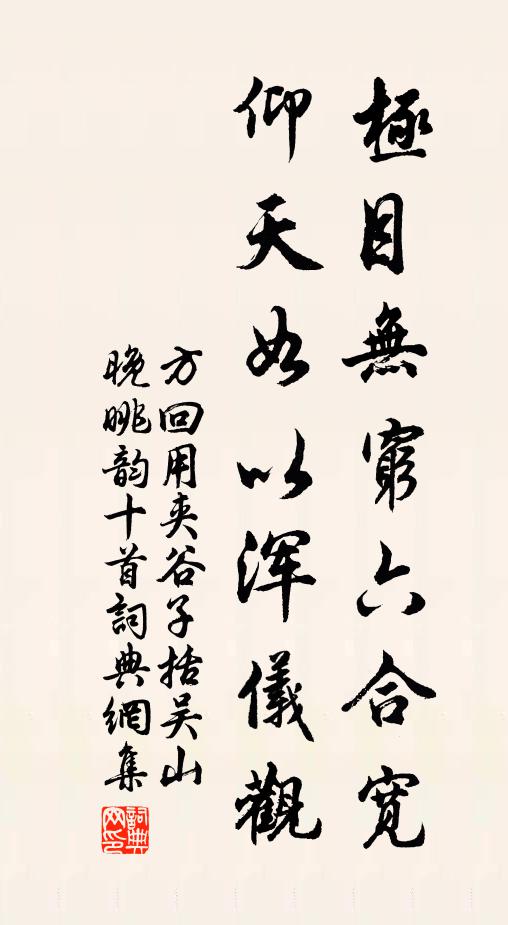 極目無窮六合寬
仰天如以浑儀觀
方回用夾谷子括吴山
晚眺韵十首詞典網集
詞典網印